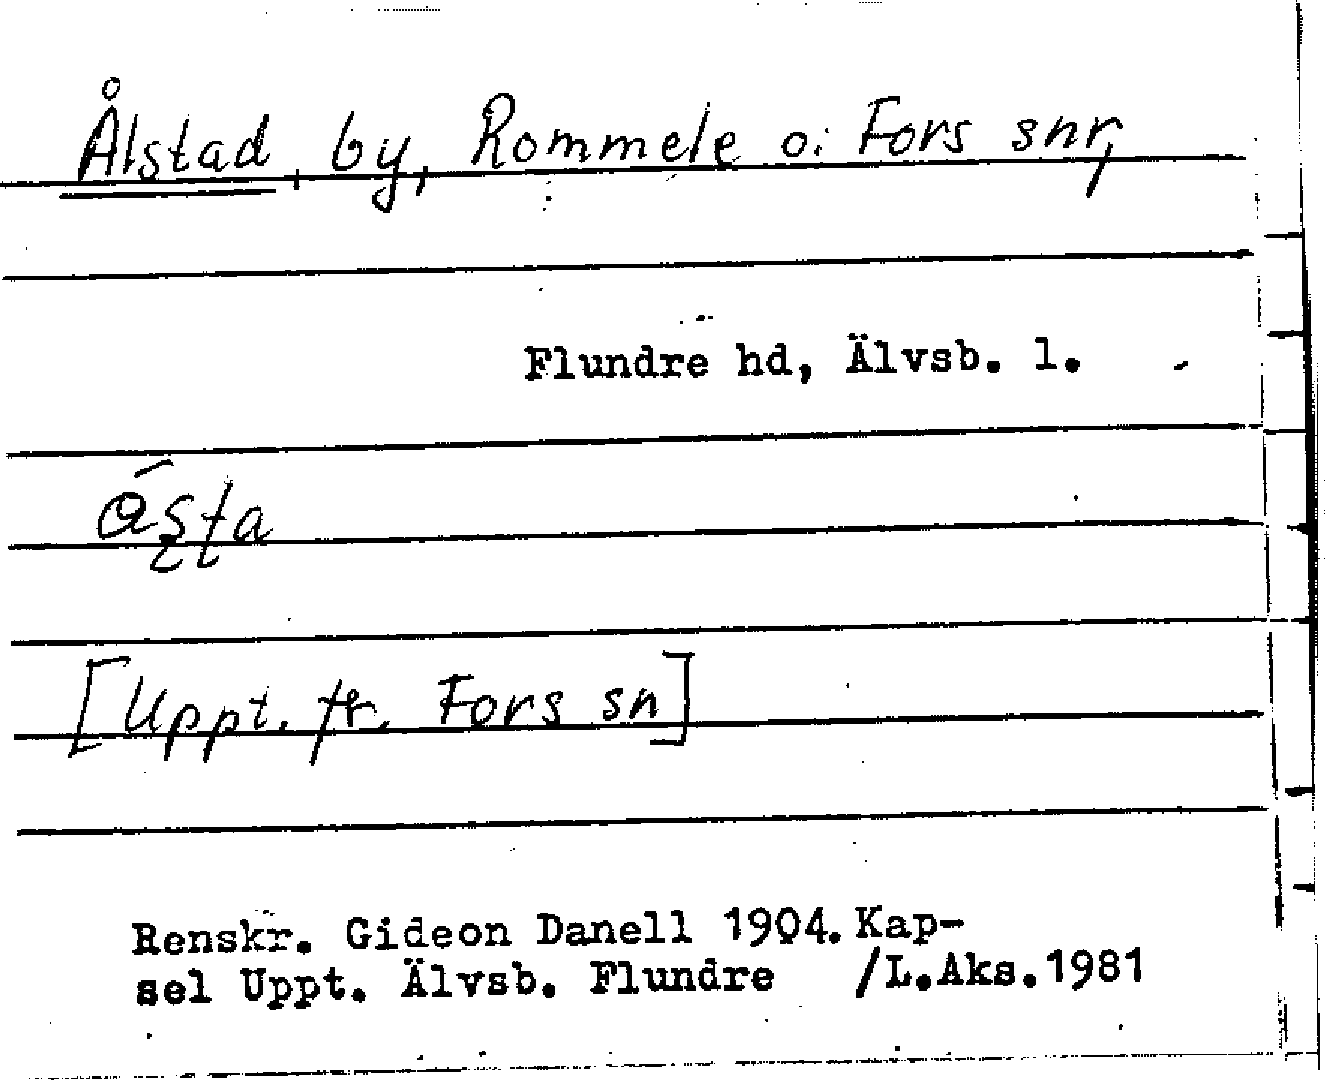 Ålstad, by, Rommele o. Fors snr,
Flundre hd, Älvsb. l.
[Uppt. fr. Fors sn]
Renskr. Gideon Danell 1904. Kap-
sel Uppt. Älvsb. Flundre /L.Aks.1981